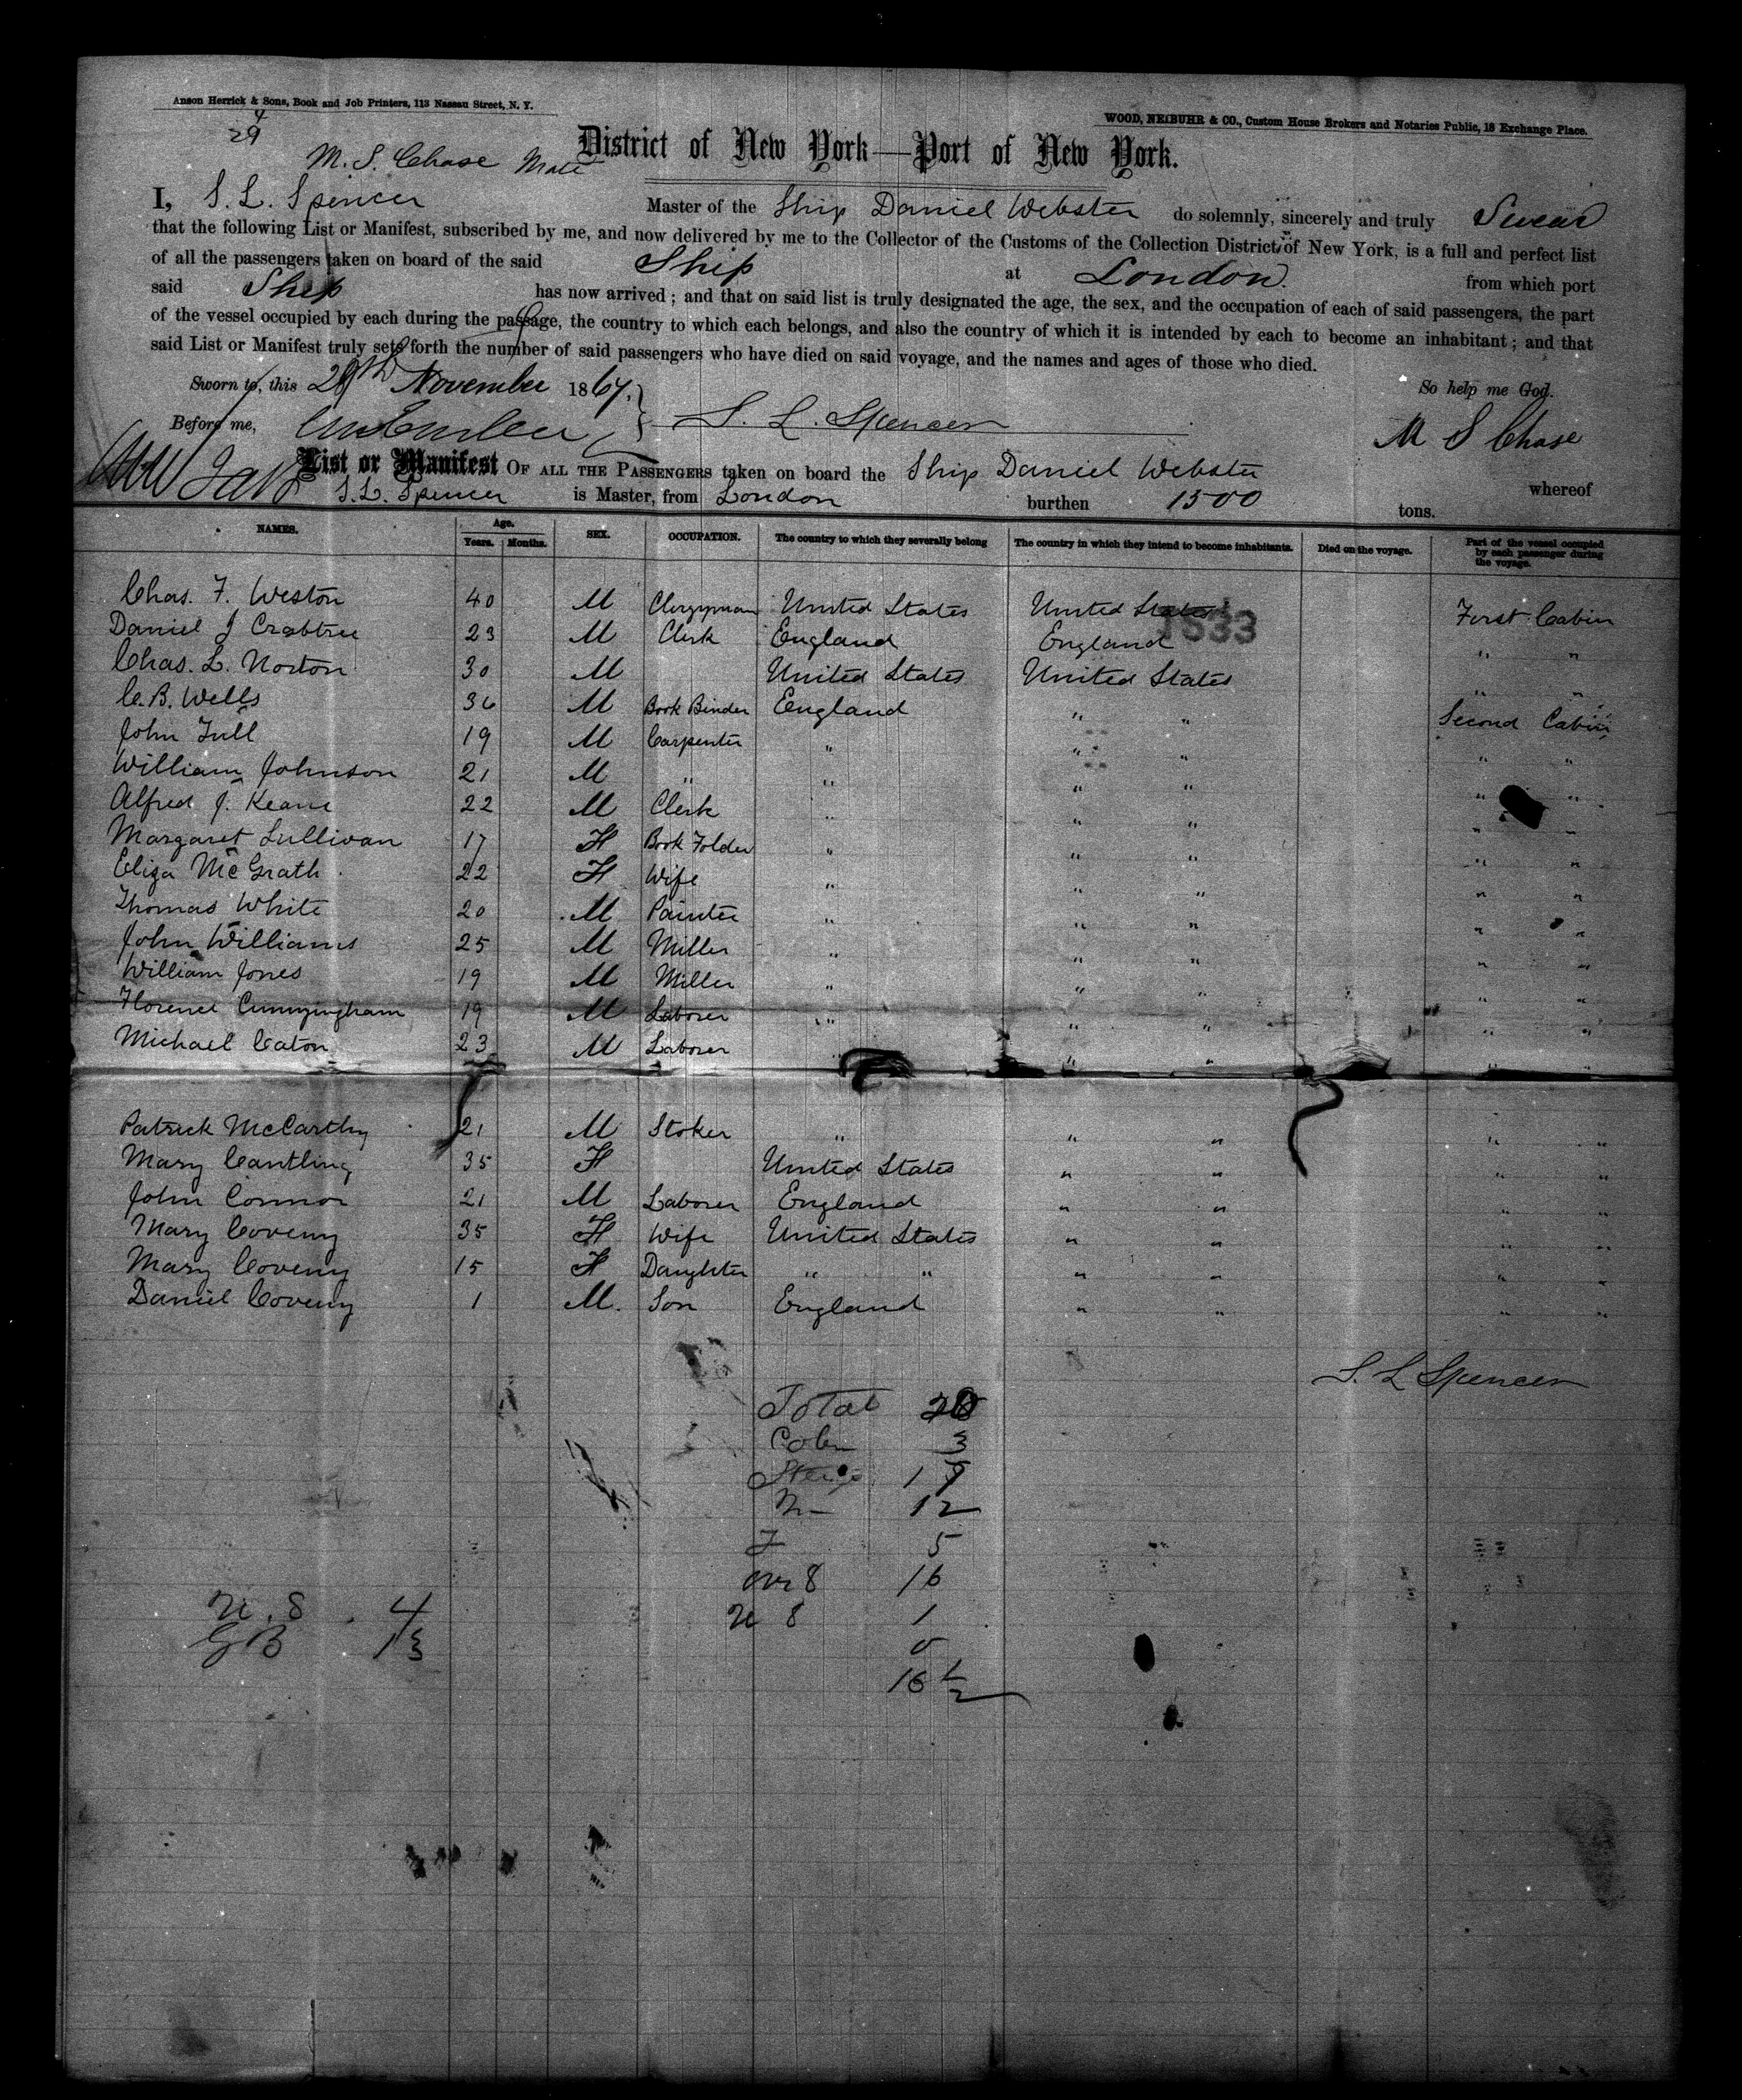 Anson Herrick & Sons, Book and Job Printers, 113 Nassau Street, N. Y.
WOOD, NEIBUHR & CO., Custom House Brokers and Notaries Public, 18 Exchange Place.
29
District of New York—Port of New York.
M. S. Chase Mate
I, S. L. Spencer Master of the Ship Daniel Webster do solemnly, sincerely and truly Swear
that the following List or Manifest, subscribed by me, and now delivered by me to the Collector of the Customs of the Collection District of New York, is a full and perfect list
of all the passengers taken on board of the said Ship at London. from which port
said Ship has now arrived; and that on said list is truly designated the age, the sex, and the occupation of each of said passengers, the part
of the vessel occupied by each during the passage, the country to which each belongs, and also the country of which it is intended by each to become an inhabitant; and that
said List or Manifest truly sets forth the number of said passengers who have died on said voyage, and the names and ages of those who died.
Sworn to, this 29th November 1867. So help me God.
Before me, S. L. Spencer M S Chase
List or Manifest OF ALL THE PASSENGERS taken on board the Ship Daniel Webster whereof
S. L. Spencer is Master, from London burthen 1500 tons.
NAMES. Age. Years. Months. SEX. OCCUPATION. The country to which they severally belong The country in which they intend to become inhabitants. Died on the voyage. Part of the vessel occupied by each passenger during the voyage.
1533
Chas. F. Weston 40 M Clergyman United States United States First Cabin
Daniel J Crabtree 23 M Clerk England England " "
Chas. L. Norton 30 M United States United States " "
C. B. Wells 36 M Book Binder England " " Second Cabin
John Tull 19 M Carpenter " " " " "
William Johnson 21 M " " " " " "
Alfred J. Keane 22 M Clerk " " " " "
Margaret Sullivan 17 F Book Folder " " " " "
Eliza McGrath 22 F Wife " " " " "
Thomas White 20 M Painter " " " " "
John Williams 25 M Miller " " " " "
William Jones 19 M Miller " " " " "
Florence Cunnyingham 19 M Laborer " " " " "
Michael Caton 23 M Laborer " " " "
Patrick McCarthy 21 M Stoker " " " " "
Mary Cantling 35 F United States " " " "
John Connor 21 M Laborer England " " " "
Mary Coveny 35 F Wife United States " " " "
Mary Coveny 15 F Daughter " " " " " "
Daniel Coveny 1 M. Son England " " " "
S. L Spencer
Total 20
Cabn 3
Sterge 17
M— 12
F 5
ovr 8 16
U 8 1
0
16 1/2
U. S. 4
GB 13